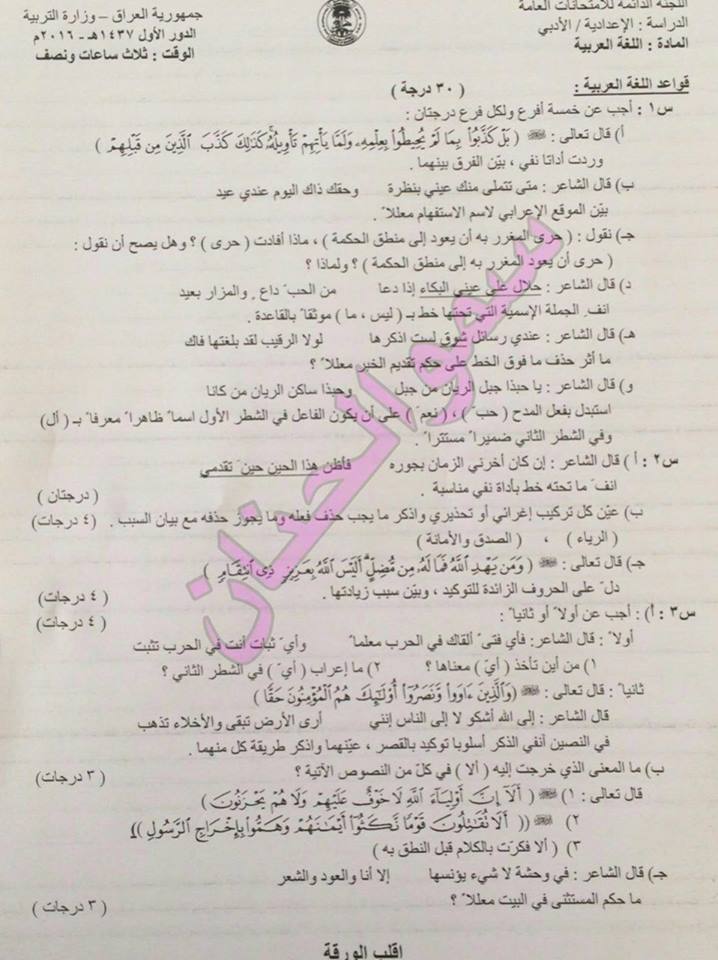 اللجنة الدائمة للامتحانات العامة
جمهورية العراق – وزارة التربية
الدراسة : الإعدادية / الأدبي
الدور الأول ١٤٣٧هـ - ٢٠١٦م
المادة : اللغة العربية
الوقت : ثلاث ساعات ونصف
قواعد اللغة العربية : ( ٣٠ درجة )
س١ : أجب عن خمسة أفرع ولكل فرع درجتان :
أ) قال تعالى : ﷺ ( بَلْ كَذَّبُوا بِمَا لَمْ يُحِيطُوا بِعِلْمِهِ وَلَمَّا يَأْتِهِمْ تَأْوِيلُهُ كَذَٰلِكَ كَذَّبَ الَّذِينَ مِن قَبْلِهِمْ )
وردت أداتا نفي ، بيّن الفرق بينهما .
ب) قال الشاعر : متى تتملى منك عيني بنظرة وحقك ذاك اليوم عندي عيد
بيّن الموقع الإعرابي لاسم الاستفهام معللاً .
جـ) نقول : ( حرى المغرر به أن يعود إلى منطق الحكمة ) ، ماذا أفادت ( حرى ) ؟ وهل يصح أن نقول :
( حرى أن يعود المغرر به إلى منطق الحكمة ) ؟ ولماذا ؟
د) قال الشاعر : حلال على عيني البكاء إذا دعا من الحبّ داعٍ والمزار بعيد
انفِ الجملة الإسمية التي تحتها خط بـ ( ليس ، ما ) موثقاً بالقاعدة .
هـ) قال الشاعر : عندي رسائل شوق لست اذكرها لولا الرقيب لقد بلغتها فاك
ما أثر حذف ما فوق الخط على حكم تقديم الخبر معللاً ؟
و) قال الشاعر : يا حبذا جبل الريان من جبل وحبذا ساكن الريان من كانا
استبدل بفعل المدح ( حبّ ) ، ( نعمَ ) على أن يكون الفاعل في الشطر الأول اسماً ظاهراً معرفاً بـ ( أل )
وفي الشطر الثاني ضميراً مستتراً .
س٢ : أ ) قال الشاعر : إن كان أخرني الزمان بجوره فأظن هذا الحين حينَ تقدمي
انفَ ما تحته خط بأداة نفي مناسبة . ( درجتان )
ب) عيّن كل تركيب إغرائي أو تحذيري واذكر ما يجب حذف فعله وما يجوز حذفه مع بيان السبب . ( ٤ درجات )
( الرياء ) ، ( الصدق والأمانة )
جـ) قال تعالى : ﷺ ( وَمَن يَهْدِ اللَّهُ فَمَا لَهُ مِن مُّضِلٍّ أَلَيْسَ اللَّهُ بِعَزِيزٍ ذِي انتِقَامٍ )
دلّ على الحروف الزائدة للتوكيد ، وبيّن سبب زيادتها . ( ٤ درجات )
س٣ : أ) : أجب عن أولاً أو ثانياً : ( ٤ درجات )
أولاً : قال الشاعر: فأي فتىً ألقاك في الحرب معلماً وأيّ ثبات أنت في الحرب تثبت
١) من أين تأخذ ( أيّ ) معناها ؟ ٢) ما إعراب ( أيّ ) في الشطر الثاني ؟
ثانياً : قال تعالى : ﷺ (وَالَّذِينَ ءَاوَوا وَّنَصَرُوا أُولَٰئِكَ هُمُ الْمُؤْمِنُونَ حَقًّا )
قال الشاعر : إلى الله أشكو لا إلى الناس إنني أرى الأرض تبقى والأخلاء تذهب
في النصين آنفي الذكر أسلوبا توكيد بالقصر ، عيّنهما واذكر طريقة كل منهما .
ب) ما المعنى الذي خرجت إليه ( ألا ) في كلّ من النصوص الآتية ؟ ( ٣ درجات )
قال تعالى : ١) ﷺ ( أَلَا إِنَّ أَوْلِيَاءَ اللَّهِ لَا خَوْفٌ عَلَيْهِمْ وَلَا هُمْ يَحْزَنُونَ )
٢) ﷺ (( أَلَا تُقَاتِلُونَ قَوْمًا نَّكَثُوا أَيْمَانَهُمْ وَهَمُّوا بِإِخْرَاجِ الرَّسُولِ ))
٣) ( ألا فكرت بالكلام قبل النطق به )
جـ) قال الشاعر : في وحشة لا شيء يؤنسها إلا أنا والعود والشعر
ما حكم المستثنى في البيت معللاً ؟ ( ٣ درجات )
اقلب الورقة
سمو الخنان